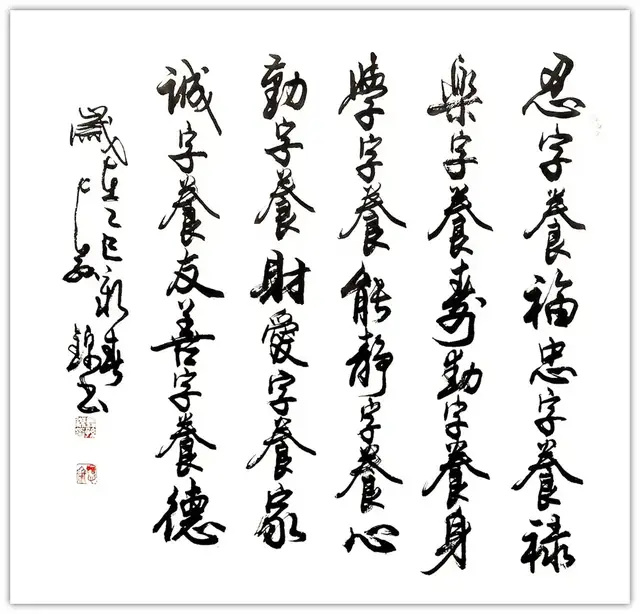 忍字養福忠字養祿
樂字養壽動字養身
學字養能靜字養心
勤字養財愛字養家
誠字養友善字養德
歲在乙巳新春
錦書